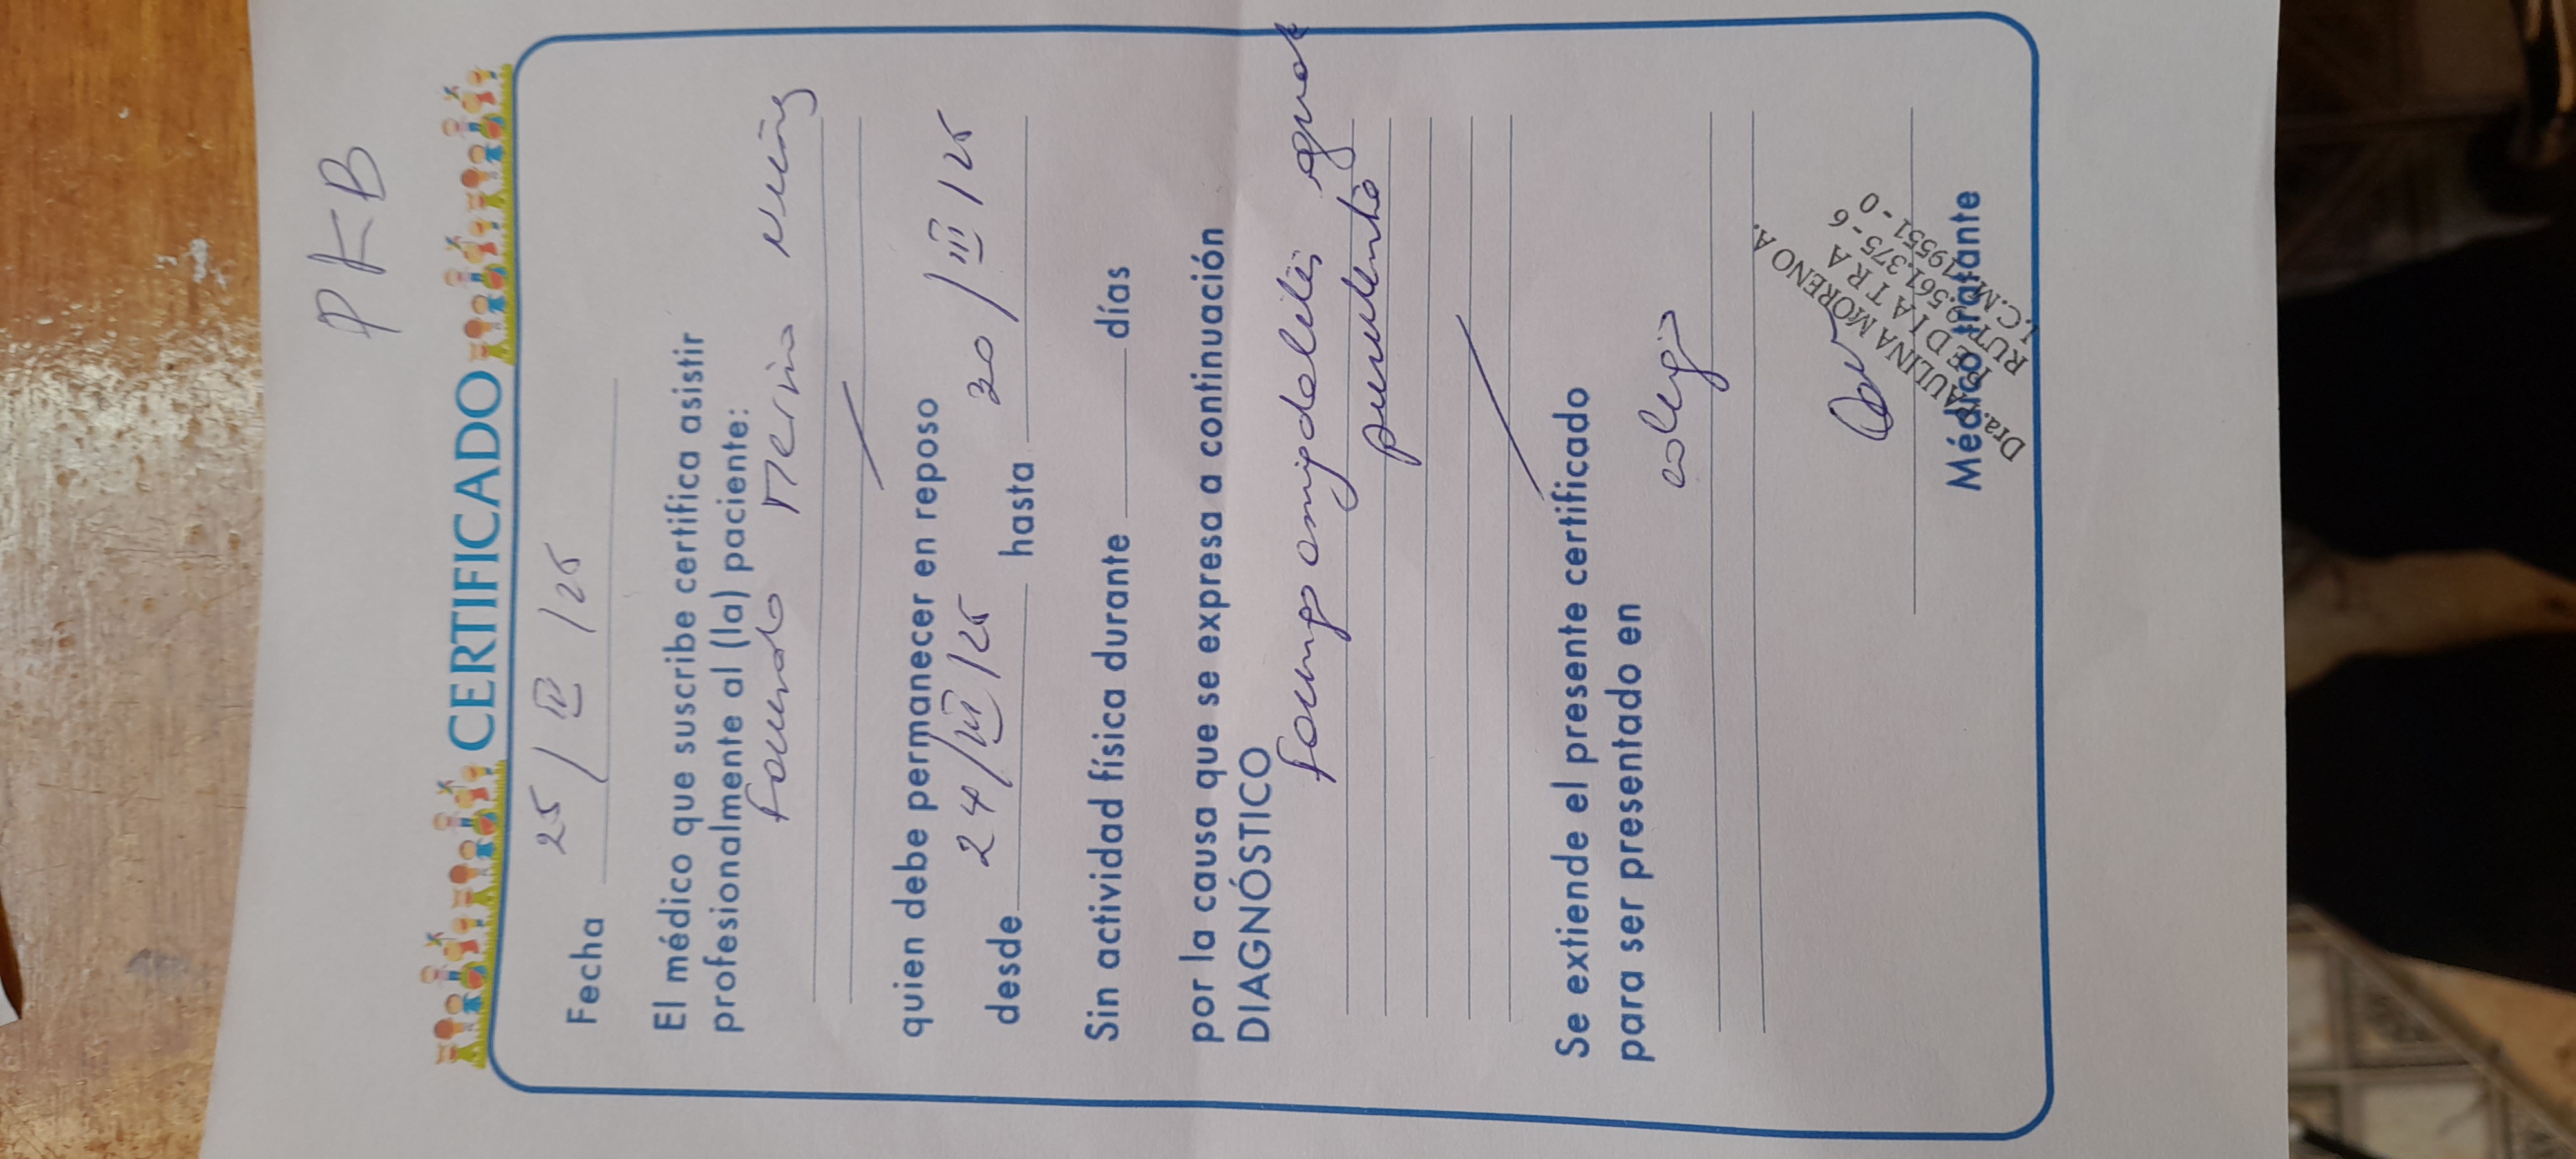 PKB
CERTIFICADO
Fecha 25 / III / 25
El médico que suscribe certifica asistir
profesionalmente al (la) paciente:
Facundo Merino
quien debe permanecer en reposo
desde 24/III/25 hasta 30/III/25
Sin actividad física durante días
por la causa que se expresa a continuación
DIAGNÓSTICO
faringoamigdalitis aguda
purulenta
Se extiende el presente certificado
para ser presentado en
colegio
Dra. PAULINA MORENO A.
PEDIATRA
RUT: 9.561.375-6
I.C.M. 19551-0
Médico tratante